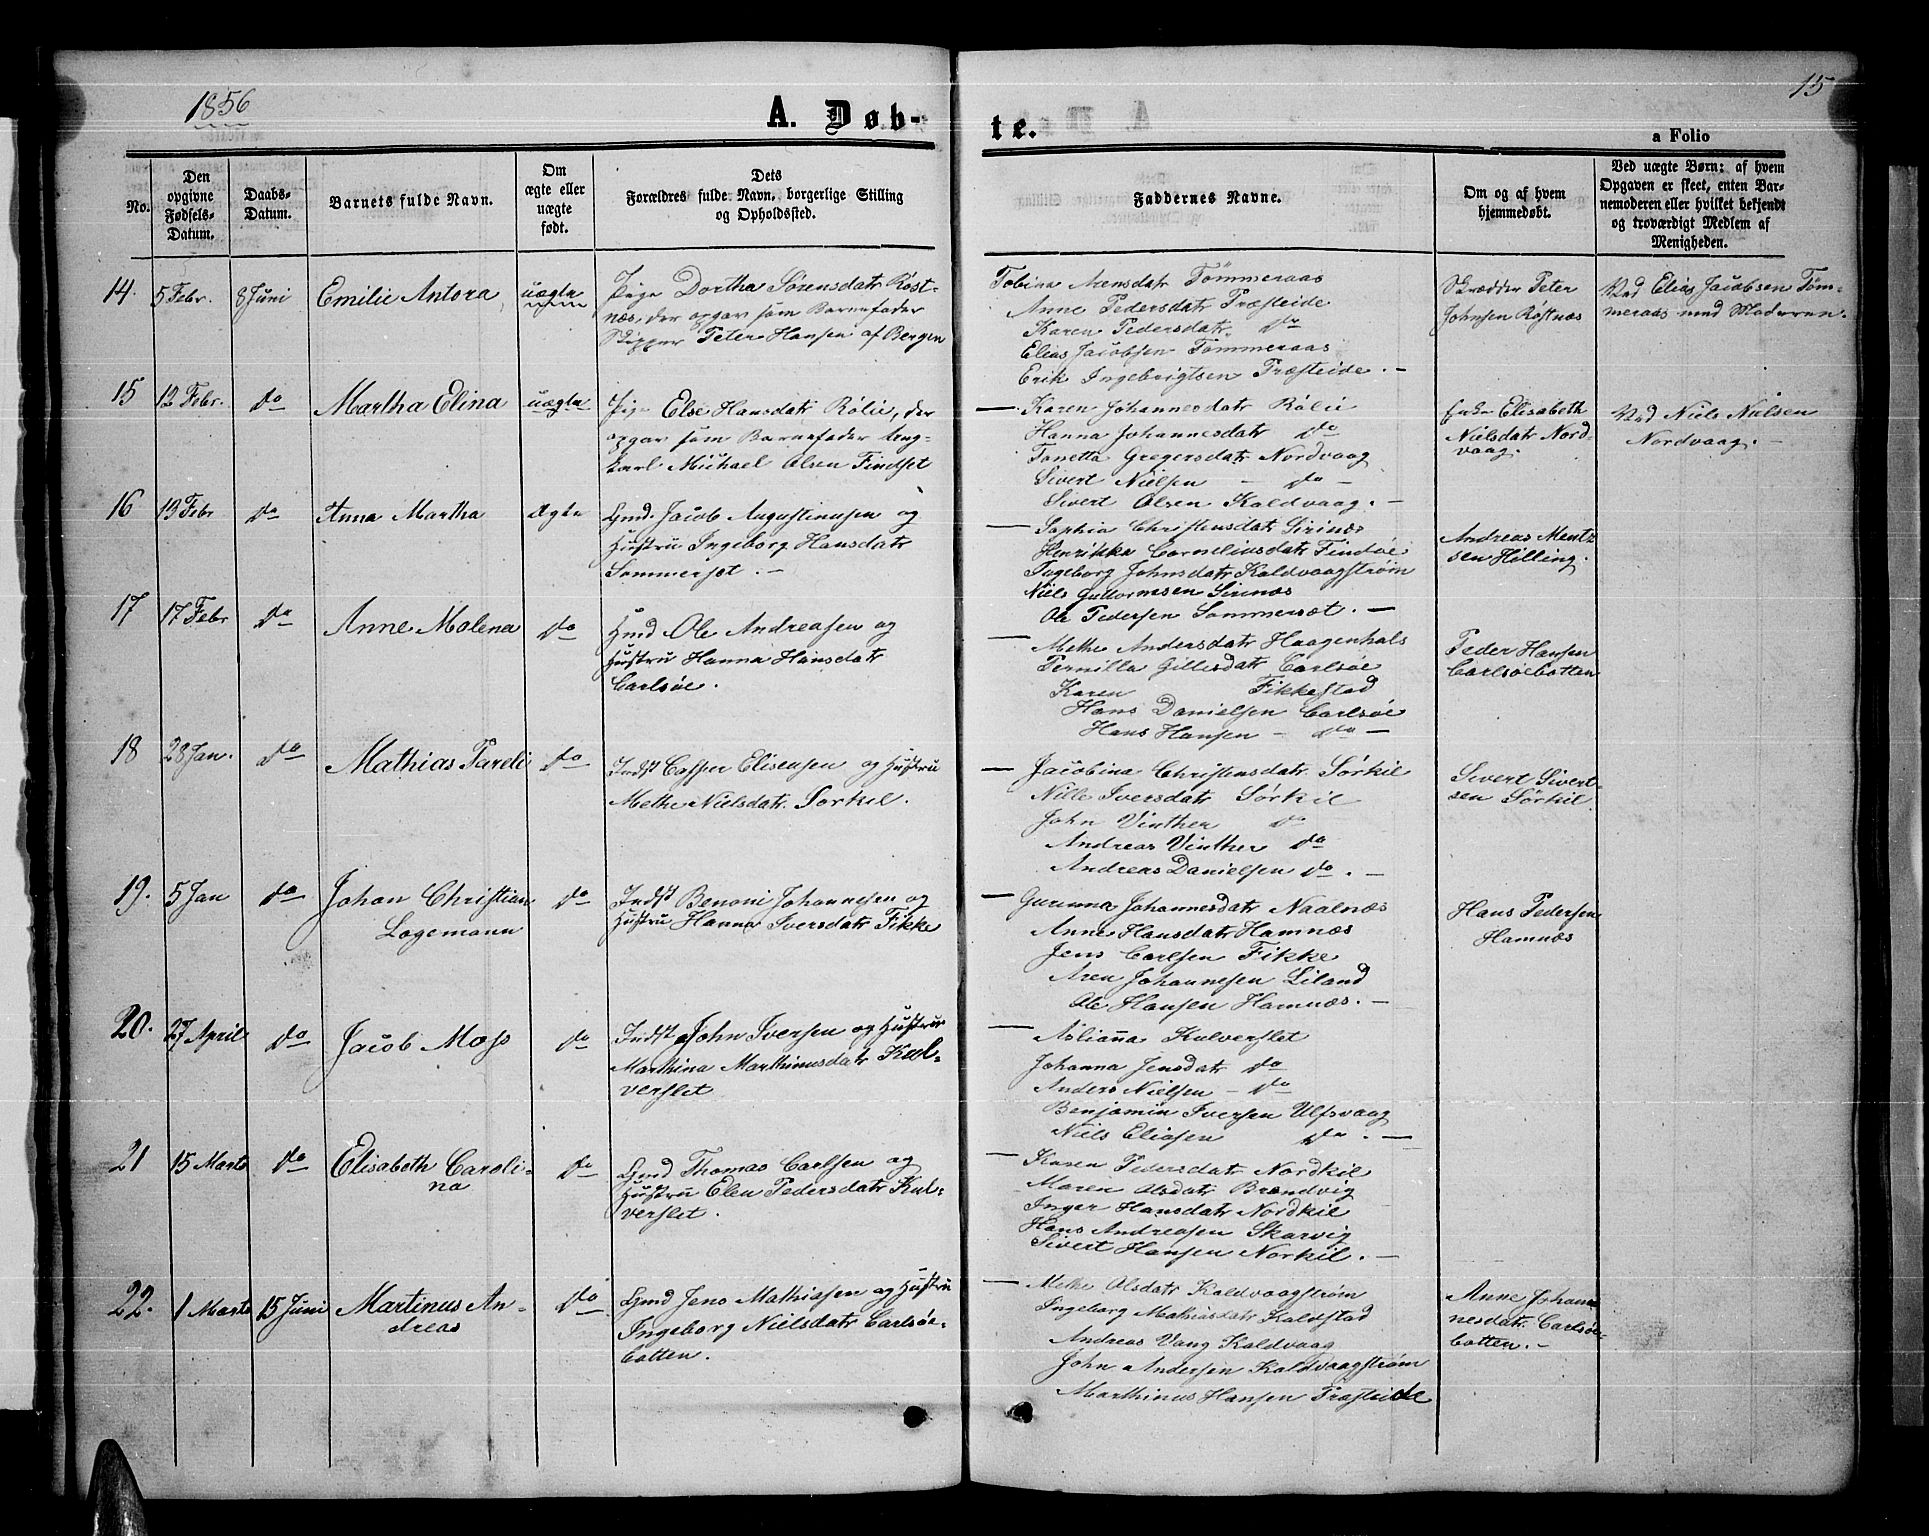 1856
A. Døb-
te.
15
a Folio
No.
Den opgivne Fødsels-Datum.
Daabs-Datum.
Barnets fulde Navn.
Om ægte eller uægte født.
Dets
Forældres fulde Navn, borgerlige Stilling
og Opholdssted.
Faddernes Navne.
Om og af hvem
hjemmedøbt.
Ved uægte Børn: af hvem
Opgaven er skeet, enten Bar-
nemoderen eller hvilket bekjendt
og troværdigt Medlem af
Menigheden.
14. 5 Febr. 8 Juni Emilie Antora uægte
Pige Dorthea Sørensdatr Røst-
næs, der opgav som Barnefader
Skipper Peter Hansen af Bergen
Tobina Arensdatr Tömmeraas
Anne Pedersdatr Præsteide
Karen Pedersdatr do
Elias Jacobsen Tömmeraas
Erik Ingebrigtsen Præsteide. -
Skrædder Peter
Johnsen Røstnæs
Ved Elias Jacobsen Töm-
meraas med Moderen.
15 12 Febr. do Martha Elina uægte
Pige Else Hansdatr Rølie, der
opgav som Barnefader Ung-
karl Michael Olsen Findset
- Karen Johannesdatr Rölie
Hanna Johannesdatr do
Tonetta Gregersdatr Nordvaag
Sivert Nielsen - do -
Sivert Olsen Kaldvaag. -
Elisabeth
Nielsdatr Nord-
vaag.
Ved Niels Nielsen
Nordvaag. -
16 13 Febr do Anna Martha Ægte
Gmd. Jacob Augustinusen og
Hustru Ingeborg Hansdatr
Sommerset. -
- Sophia Christensdatr Girinæs
Henrikka Corneliusdatr Findøe
Ingeborg Johnsdatr Kaldvaagstrøm
Niels Guttormsen Girinæs
Ole Pedersen Sommerset. -
Andreas Mentz-
sen Hilling.
17 17 Febr do Anne Molena do
Hmd Ole Andreasen og
Hustru Hanna Hansdatr
Carlsøe.
Methe Andersdatr Haagenhals
Pernilla Gillesdatr Carlsøe
Karen Fikkestad
Hans Danielsen Carlsøe
Hans Hansen - do -
Peder Hansen
Carlsøebotten
18 28 Jan. do Mathias Pareli do
Indst Casper Elisensen og Hustru
Methe Nielsdatr. Sorkil.
- Jacobina Christensdatr. Sörkil
Nille Iversdatr Sörkil
John Vinther do
Andreas Vinther do
Andreas Danielsen do. -
Sivert Sivert-
sen Sörkil.
19. 5 Jan do Johan Christian
Lagemann do
Indst Benoni Johannesen og
Hustru Hanna Iversdatr Fikke
- Gurunna Johannesdatr Naalnæs
Anne Hansdatr Hamnæs
Jens Carlsen Fikke
Aren Johannesen Liland
Ole Hansen Hamnæs. -
Hans Pedersen
Hamnæs
20. 27 April do Jacob Moss do
Indst John Iversen og Hustru
Marthina Marthinusdatr Kul-
verslet
- Aslianna Kulverslet
Johanna Jensdatr do
Anders Nielsen - do
Benjamin Iversen Ulfsvaag
Niels Eliasen do. -
21 15 Marts do Elisabeth Caroli-
na do
Gmd Thomas Carlsen og
Hustru Elen Pedersdatr Kul-
verslet.
- Karen Pedersdatr Nordkil
Maren Olsdatr Brendvig
Inger Hansdatr Nordkil
Hans Andreasen Skarvig
Sivert Hansen Norkil. -
22. 1 Marts 15 Juni Martinus An-
dreas do
Gmd Jens Mathiasen og Hustru
Ingeborg Nielsdatr Carlsøe-
botten.
- Methe Olsdatr Kaldvaagstrøm
Ingeborg Mathiasdatr Kaldstad
Andreas Vang Kaldvaag
John Andersen Kaldvaagstrøm
Marthinus Hansen Præsteide
Anne Johan-
nesdatr. Carlsøe-
botten. -